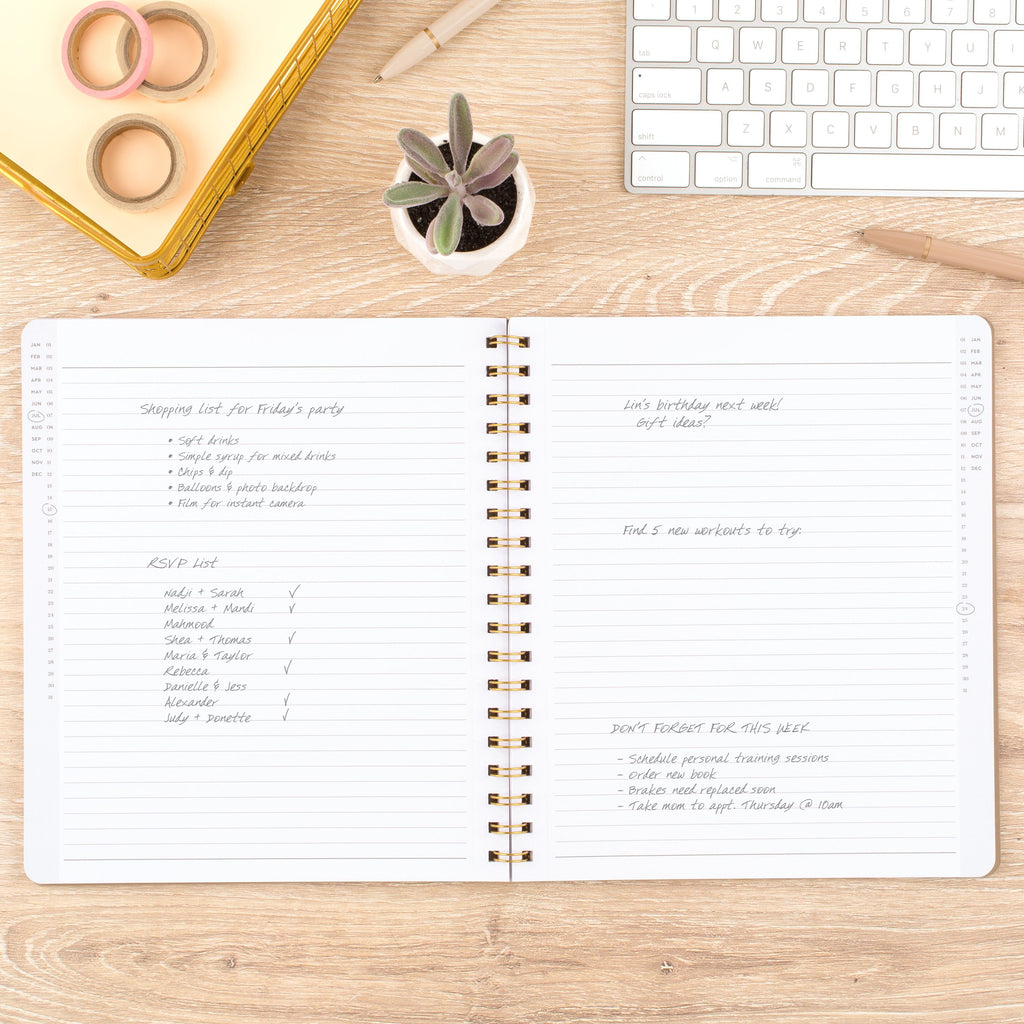 ` 1 2 3 4 5 6 7 8
tab Q W E R T Y U I
caps lock A S D F G H J K
shift Z X C V B N M
control option command
JAN 01
FEB 02
MAR 03
APR 04
MAY 05
JUN 06
JUL 07
AUG 08
SEP 09
OCT 10
NOV 11
DEC 12
13
14
15
16
17
18
19
20
21
22
23
24
25
26
27
28
29
30
31
Shopping list for Friday's party
• Soft drinks
• Simple syrup for mixed drinks
• Chips & dip
• Balloons & photo backdrop
• Film for instant camera
RSVP List
Nadji + Sarah ✓
Melissa + Mandi ✓
Mahmood
Shea + Thomas ✓
Maria & Taylor
Rebecca ✓
Danielle & Jess
Alexander ✓
Judy + Donette ✓
Lin's birthday next week!
Gift ideas?
Find 5 new workouts to try:
DON'T FORGET FOR THIS WEEK
- Schedule personal training sessions
- Order new book
- Brakes need replaced soon
- Take mom to appt. Thursday @ 10am
01 JAN
02 FEB
03 MAR
04 APR
05 MAY
06 JUN
07 JUL
08 AUG
09 SEP
10 OCT
11 NOV
12 DEC
13
14
15
16
17
18
19
20
21
22
23
24
25
26
27
28
29
30
31